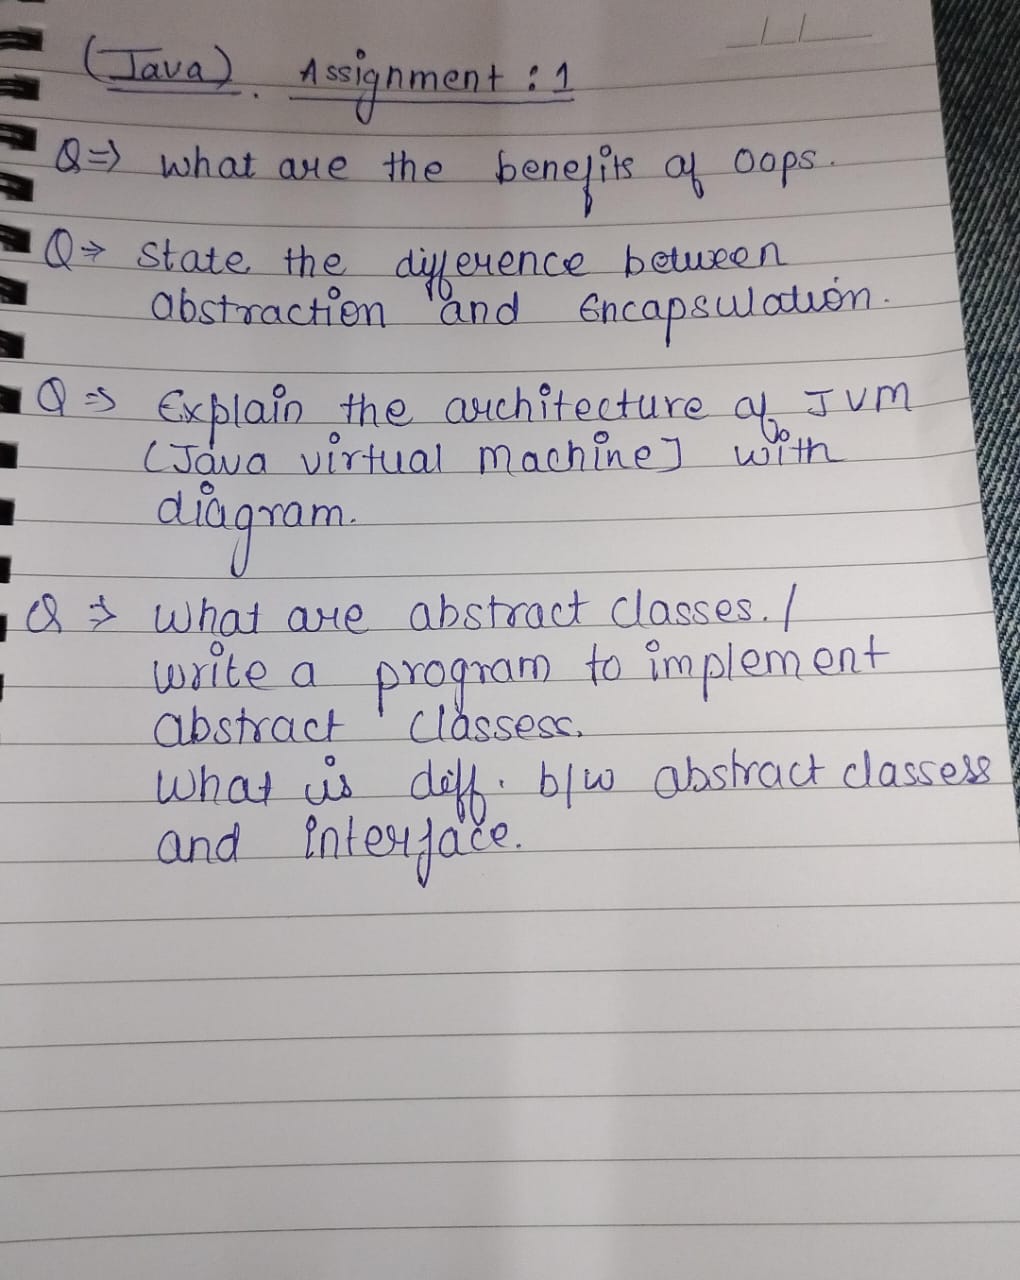 (Java). Assignment : 1
Q⇒ what are the benefits of oops.
Q⇒ state the difference between
abstraction and Encapsulation.
Q⇒ Explain the architecture of JVM
(Java virtual machine] with
diagram.
Q⇒ what are abstract classes. /
write a program to implement
abstract classess.
what is diff. b/w abstract classess
and interface.